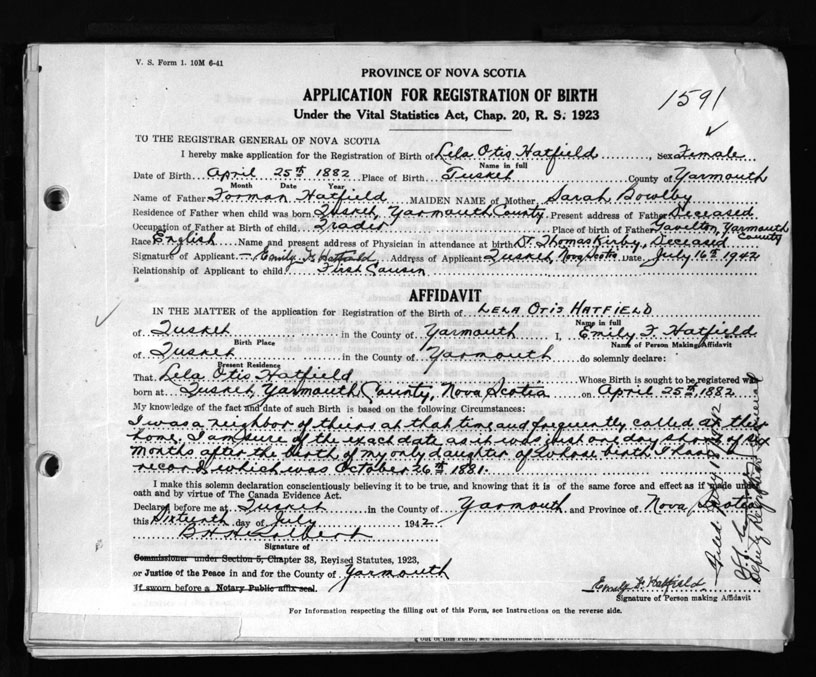 V. S. Form 1. 10M 6-41
PROVINCE OF NOVA SCOTIA
APPLICATION FOR REGISTRATION OF BIRTH
1591
Under the Vital Statistics Act, Chap. 20, R. S. 1923
TO THE REGISTRAR GENERAL OF NOVA SCOTIA
I hereby make application for the Registration of Birth of Lela Otis Hatfield, Sex Female
Name in full
Date of Birth April 25th 1882 Place of Birth Tusket County of Yarmouth
Month Date Year
Name of Father Forman Hatfield MAIDEN NAME of Mother Sarah Bowlby
Residence of Father when child was born Tusket, Yarmouth County. Present address of Father Deceased
Occupation of Father at Birth of child Trader Place of birth of Father Yarmouth County
Race English Name and present address of Physician in attendance at birth J. Thomas Kirby, Deceased
Signature of Applicant Emily F. Hatfield Address of Applicant Tusket, Nova Scotia Date July 16th 1942
Relationship of Applicant to child First Causin
AFFIDAVIT
IN THE MATTER of the application for Registration of the Birth of LELA OTIS HATFIELD
Name in full
of Tusket in the County of Yarmouth I, Emily F. Hatfield
Birth Place Name of Person Making Affidavit
of Tusket in the County of Yarmouth do solemnly declare:
Present Residence
That Lela Otis Hatfield Whose Birth is sought to be registered was
born at Tusket, Yarmouth County, Nova Scotia on April 25th, 1882
My knowledge of the fact and date of such Birth is based on the following Circumstances:
I was a neighbor of theirs at that time and frequently called at their
home. I am sure of the exact date as it was just one day short of six
months after the birth of my only daughter of whose birth I have a
record, which was October 26th 1881.
I make this solemn declaration conscientiously believing it to be true, and knowing that it is of the same force and effect as if made under
oath and by virtue of The Canada Evidence Act.
Declared before me at Tusket in the County of Yarmouth and Province of Nova Scotia
this Sixteenth day of July 1942.
Signature of
Commissioner under Section 5, Chapter 38, Revised Statutes, 1923,
or Justice of the Peace in and for the County of Yarmouth
If sworn before a Notary Public affix seal.
Emily F. Hatfield
Signature of Person making Affidavit
For Information respecting the filling out of this Form, see Instructions on the reverse side.
Filed
Deputy Registrar General